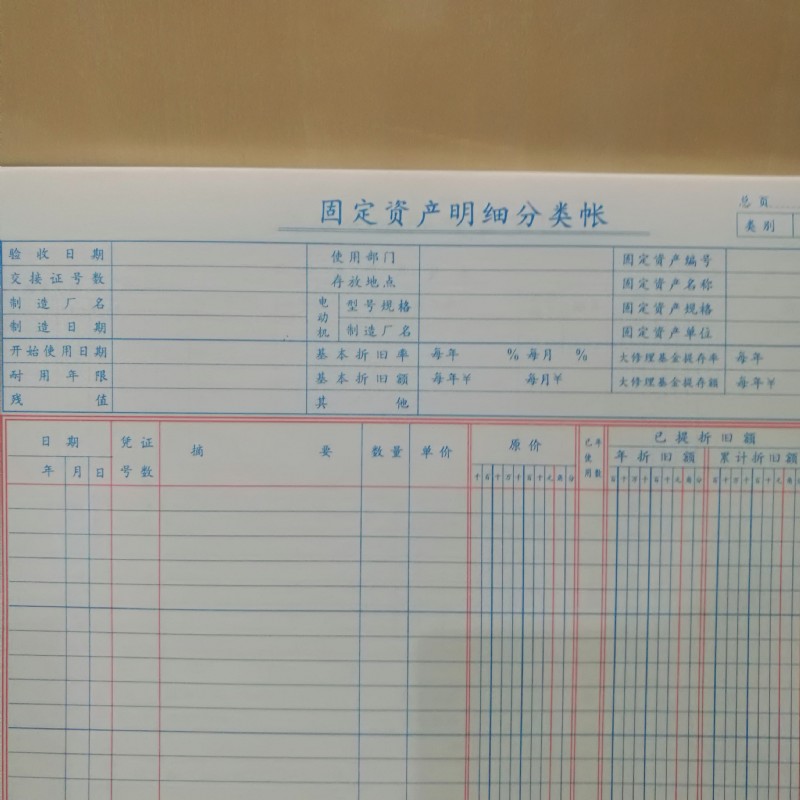 固定资产明细分类帐
总页
类别
验收日期 使用部门 固定资产编号
交接证号数 存放地点 固定资产名称
制造厂名 电动机 型号规格 固定资产规格
制造日期 制造厂名 固定资产单位
开始使用日期 基本折旧率 每年 % 每月 % 大修理基金提存率 每年
耐用年限 基本折旧额 每年¥ 每月¥ 大修理基金提存额 每年¥
残值 其他
日期 凭证 摘要 数量 单价 原价 已使用年数 已提折旧额
年 月 日 号数 年折旧额 累计折旧额
千百十万千百十元角分 百十万千百十元角分 百十万千百十元角